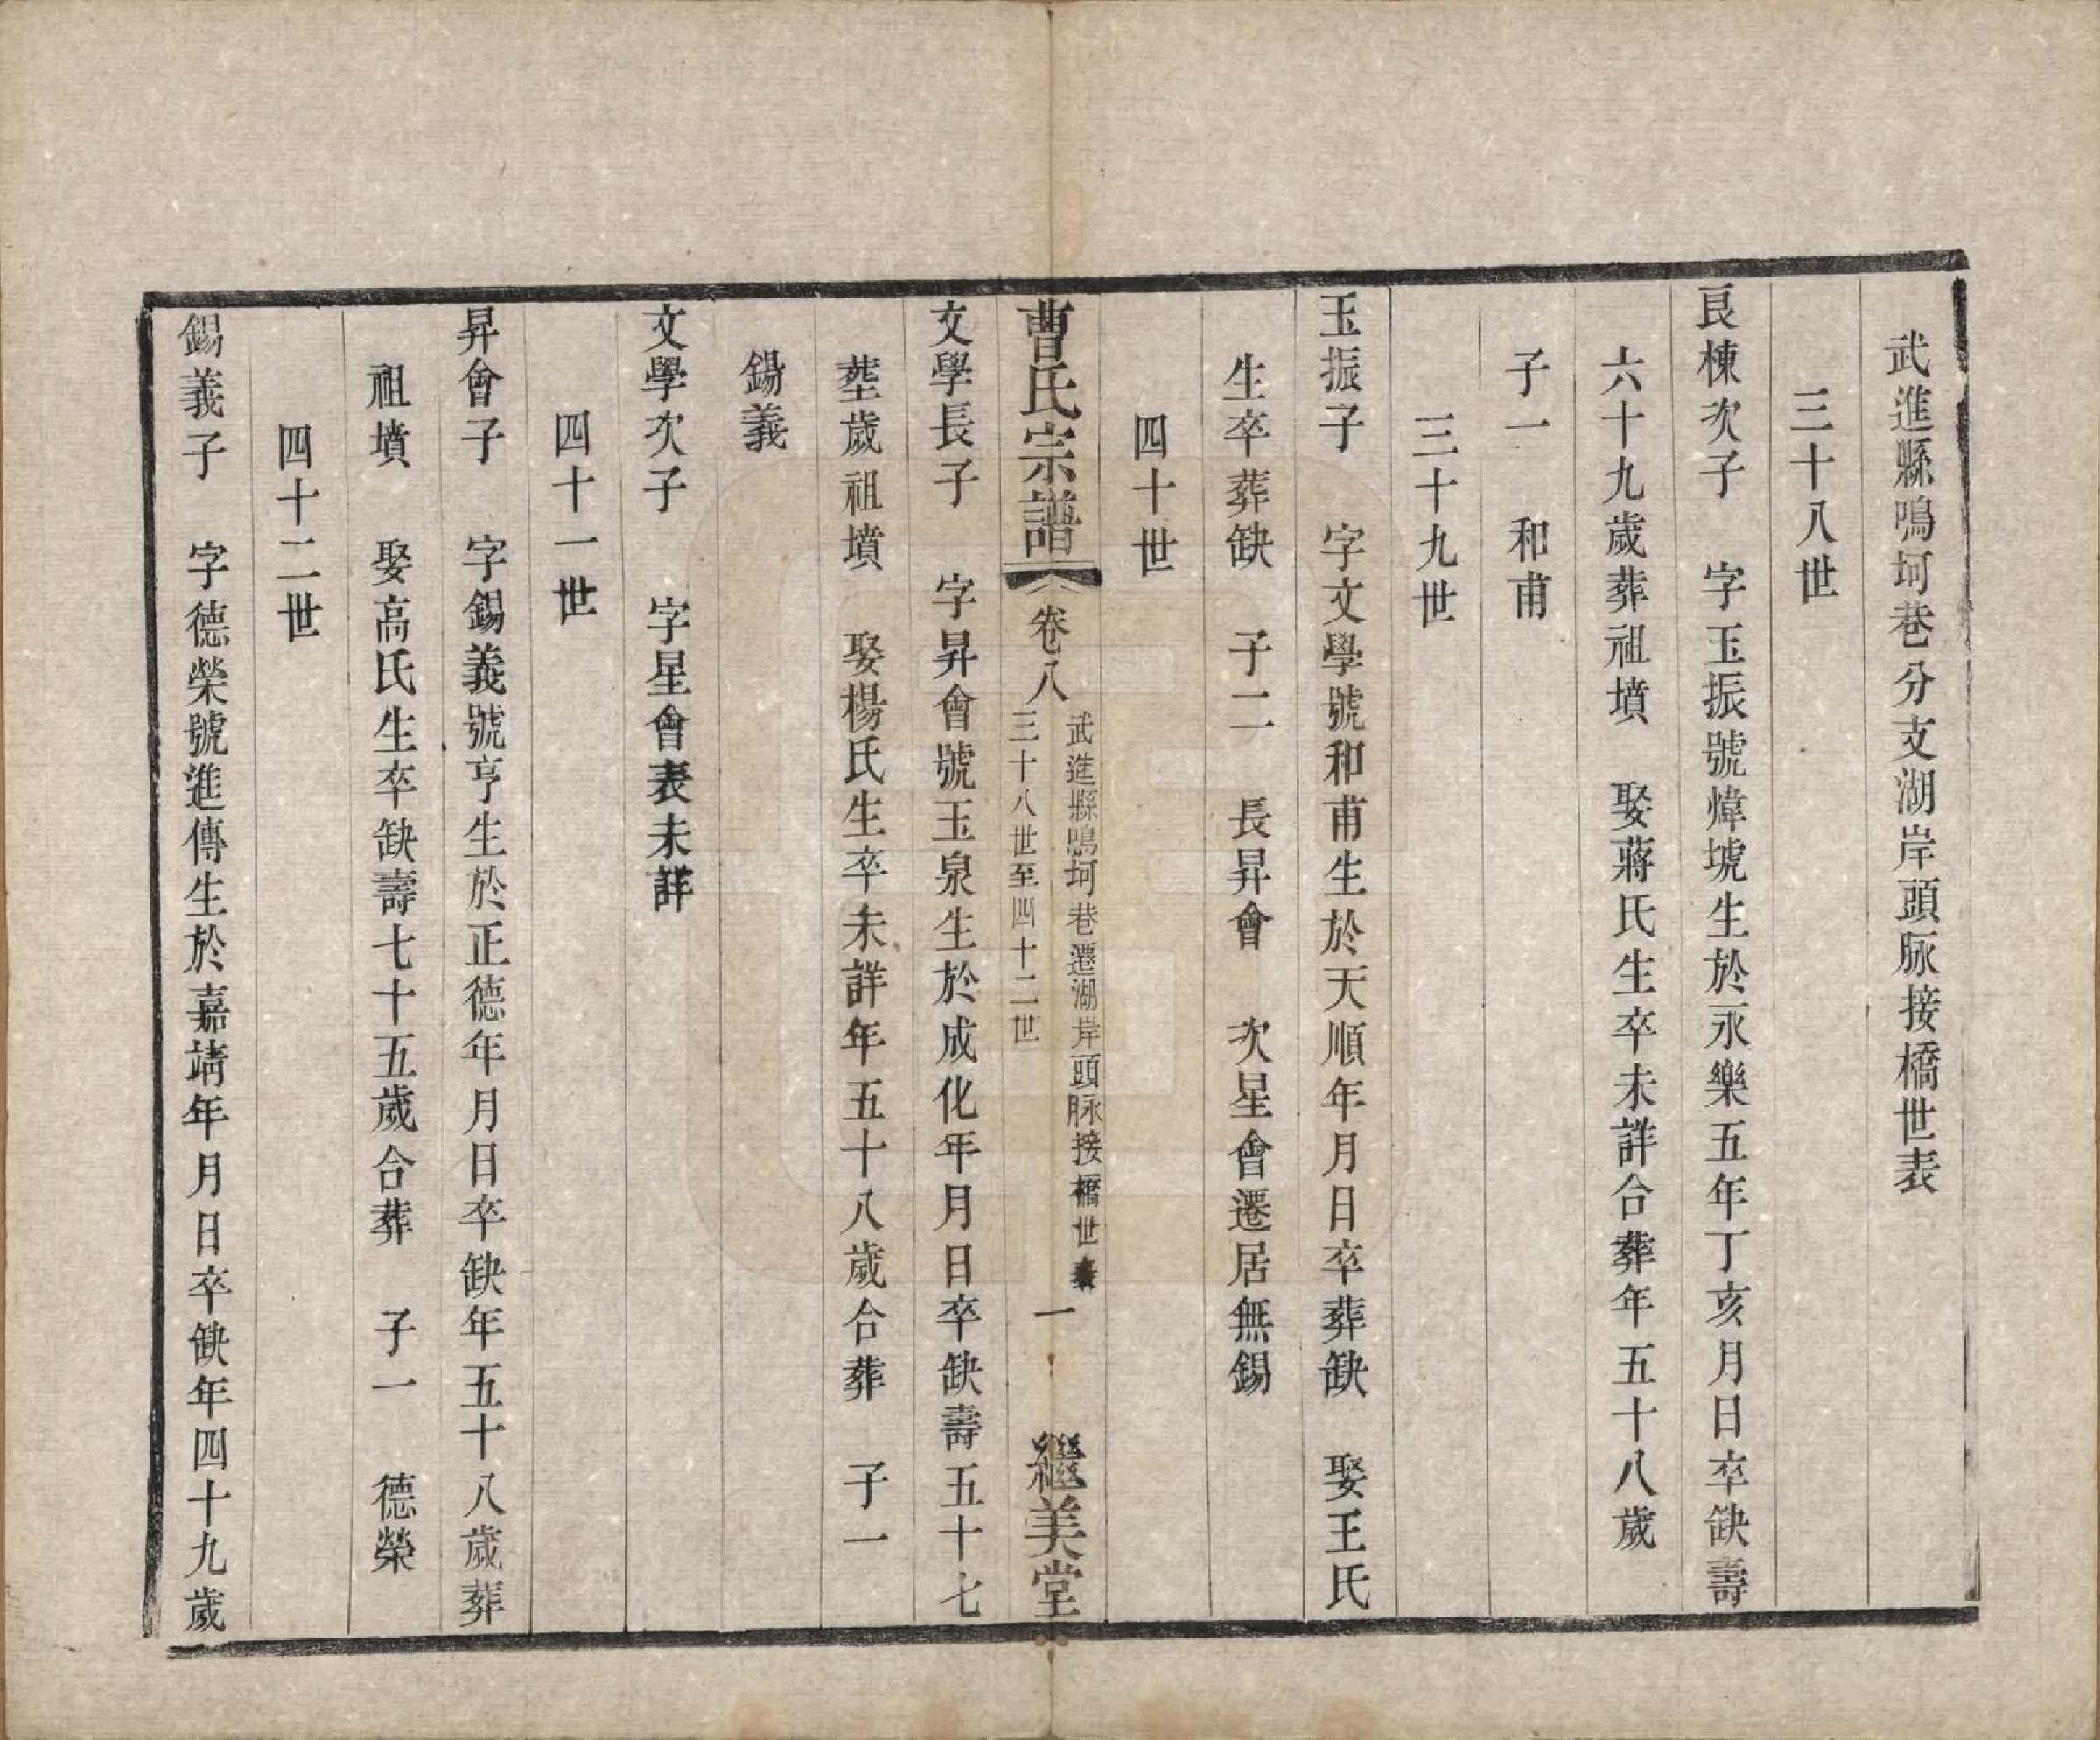 武進縣鳴坷巷分支湖岸頭脉接橋世表
三十八世
良棟次子　字玉振號煒琥生於永樂五年丁亥月日卒缺壽
六十九歲葬祖墳　娶蔣氏生卒未詳合葬年五十八歲
子一　和甫
三十九世
玉振子　字文學號和甫生於天順年月日卒葬缺　娶王氏
生卒葬缺　子二　長昇會　次星會遷居無錫
四十世
曹氏宗譜
卷八
武進縣鳴坷巷遷湖岸頭脉接橋世表
三十八世至四十二世
一
繼美堂
文學長子　字昇會號玉泉生於成化年月日卒缺壽五十七
歲祖墳　娶楊氏生卒未詳年五十八歲合葬　子一
錫義
文學次子　字星會表未詳
四十一世
昇會子　字錫義號亨生於正德年月日卒缺年五十八歲葬
祖墳　娶高氏生卒缺壽七十五歲合葬　子一　德榮
四十二世
錫義子　字德榮號進傳生於嘉靖年月日卒缺年四十九歲